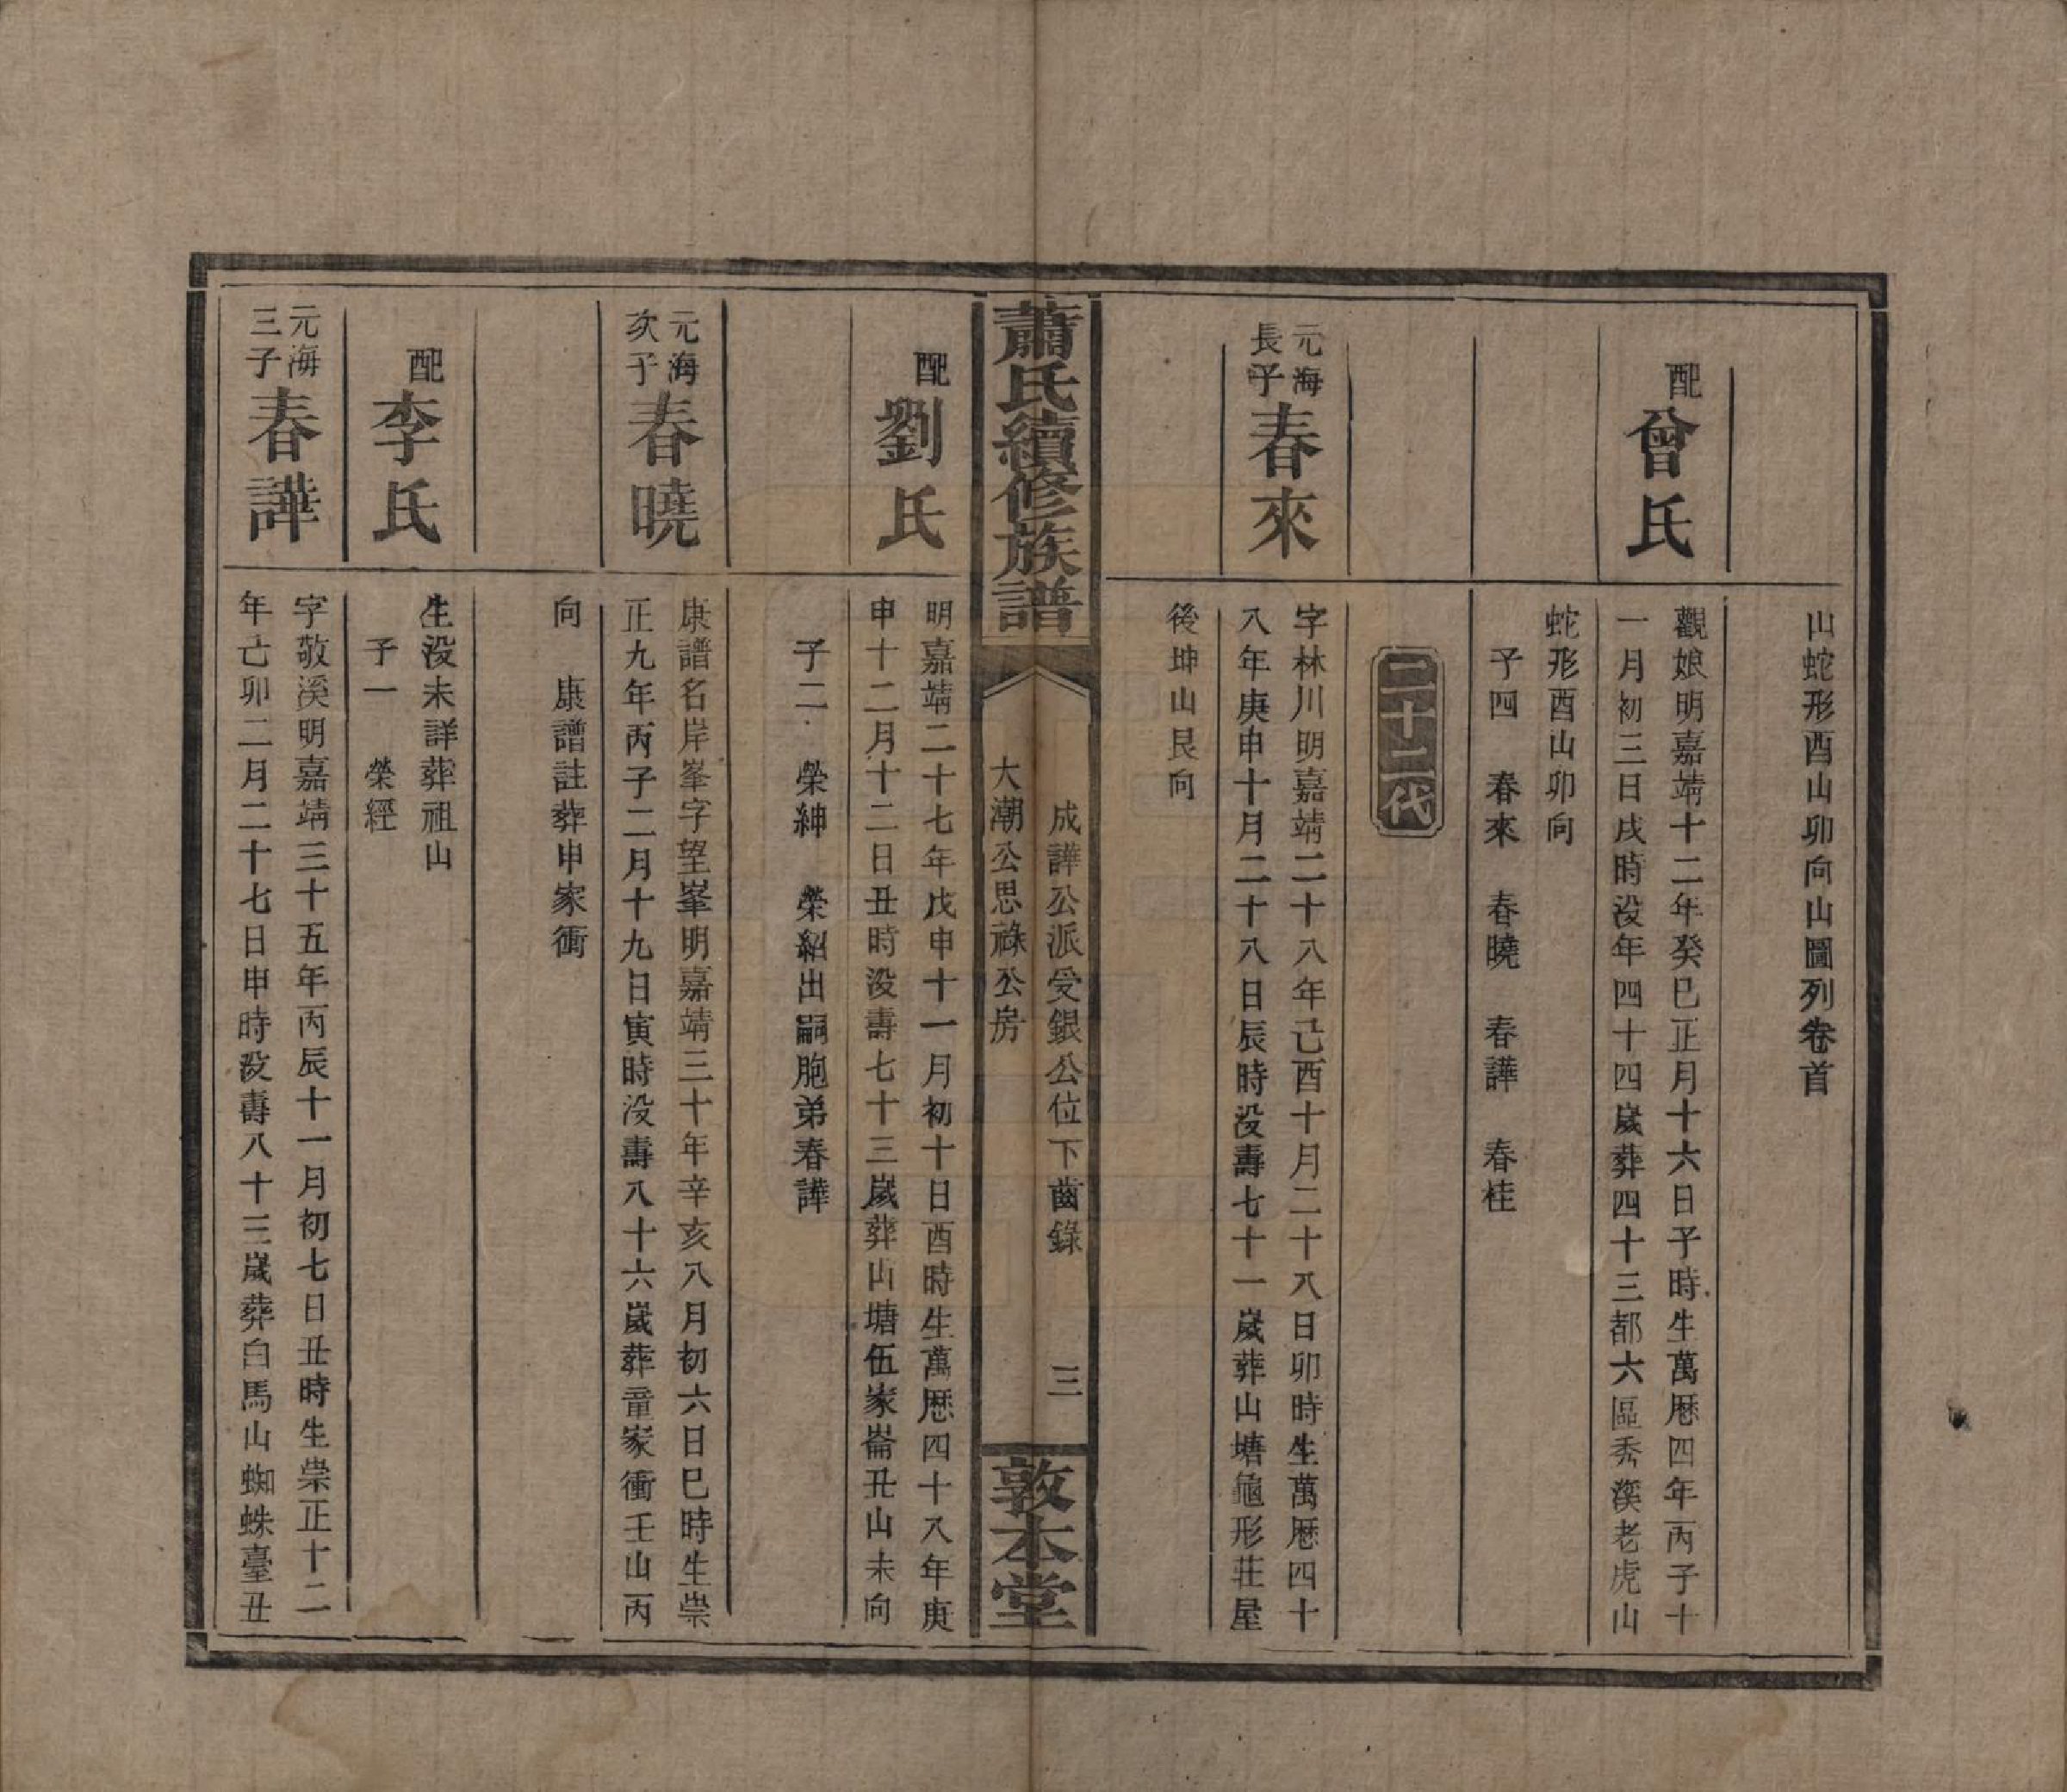 山蛇形酉山卯向山圖列卷首
配
曾氏
觀娘明嘉靖十二年癸巳正月十六日子時生萬厯四年丙子十
一月初三日戌時没年四十四嵗葬四十三都六區秀溪老虎山
蛇形酉山卯向
子四 春來 春曉 春譁 春桂
二十二代
元海
長子
春來
字林川明嘉靖二十八年己酉十月二十八日卯時生萬厯四十
八年庚申十月二十八日辰時没壽七十一嵗葬山塘龜形莊屋
後坤山艮向
蕭氏續修族譜
成譁公派受銀公位下齒錄
大潮公思祿公房
三
敦本堂
配
劉氏
明嘉靖二十七年戊申十一月初十日酉時生萬厯四十八年庚
申十二月十二日丑時没壽七十三嵗葬山塘伍家崙丑山未向
子二 榮紳 榮紹出嗣胞弟春譁
元海
次子
春曉
康譜名岸峯字望峯明嘉靖三十年辛亥八月初六日巳時生崇
正九年丙子二月十九日寅時没壽八十六嵗葬童家衝壬山丙
向 康譜註葬申家衝
配
李氏
生没未詳葬祖山
子一 榮經
元海
三子
春譁
字敬溪明嘉靖三十五年丙辰十一月初七日丑時生崇正十二
年己卯二月二十七日申時没壽八十三嵗葬白馬山蜘蛛臺丑